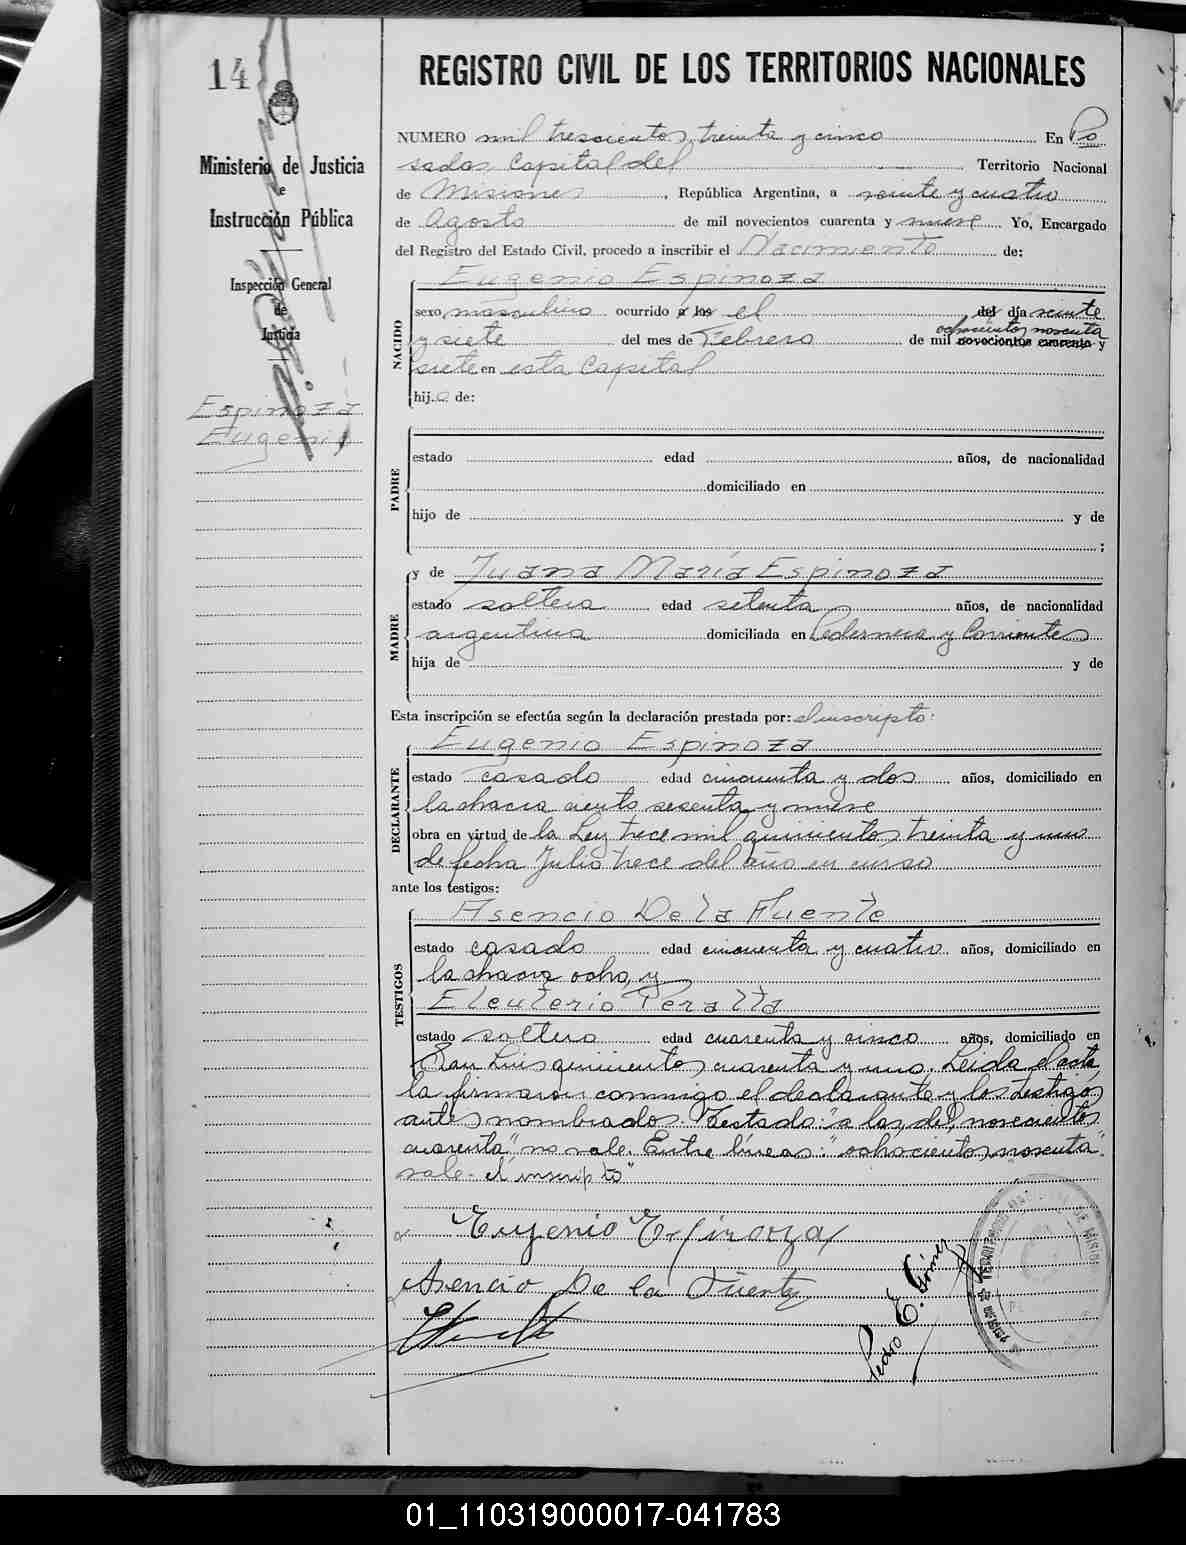 14
REGISTRO CIVIL DE LOS TERRITORIOS NACIONALES
Ministerio de Justicia
e
Instrucción Pública
Inspección General
de
Justicia
Espinoza
Eugenio
NUMERO mil trescientos treinta y cinco En Po
sadas Capital del Territorio Nacional
de Misiones, República Argentina, a veinte y cuatro
de Agosto de mil novecientos cuarenta y nueve Yo, Encargado
del Registro del Estado Civil, procedo a inscribir el Nacimiento de:
Eugenio Espinoza
NACIDO
sexo masculino ocurrido a las el del día veinte
ochocientos noventa
y siete del mes de Febrero de mil novecientos cuarenta y
siete en esta Capital
hijo de:
PADRE
estado edad años, de nacionalidad
domiciliado en
hijo de y de
;
MADRE
y de Juana María Espinoza
estado soltera edad setenta años, de nacionalidad
argentina domiciliada en Pedernera y Corrientes
hija de y de
Esta inscripción se efectúa según la declaración prestada por: el inscripto:
DECLARANTE
Eugenio Espinoza
estado casado edad cincuenta y dos años, domiciliado en
la chacra ciento sesenta y nueve
obra en virtud de la Ley trece mil quinientos treinta y uno
de fecha Julio trece del año en curso
ante los testigos:
TESTIGOS
Asencio De la Fuente
estado casado edad cincuenta y cuatro años, domiciliado en
la chacra ocho, y
Eleuterio Peralta
estado soltero edad cuarenta y cinco años, domiciliado en
San Luis quinientos cuarenta y uno. Leida el acta,
la firmaron conmigo el declarante y los testigos
antes nombrados. Testado: "a las, del, novecientos
cuarenta" no vale. Entre líneas: "ochocientos noventa"
vale. el inscripto"
Eugenio Espinoza
Asencio De la Fuente
Pedro E. Gómez
01_110319000017-041783